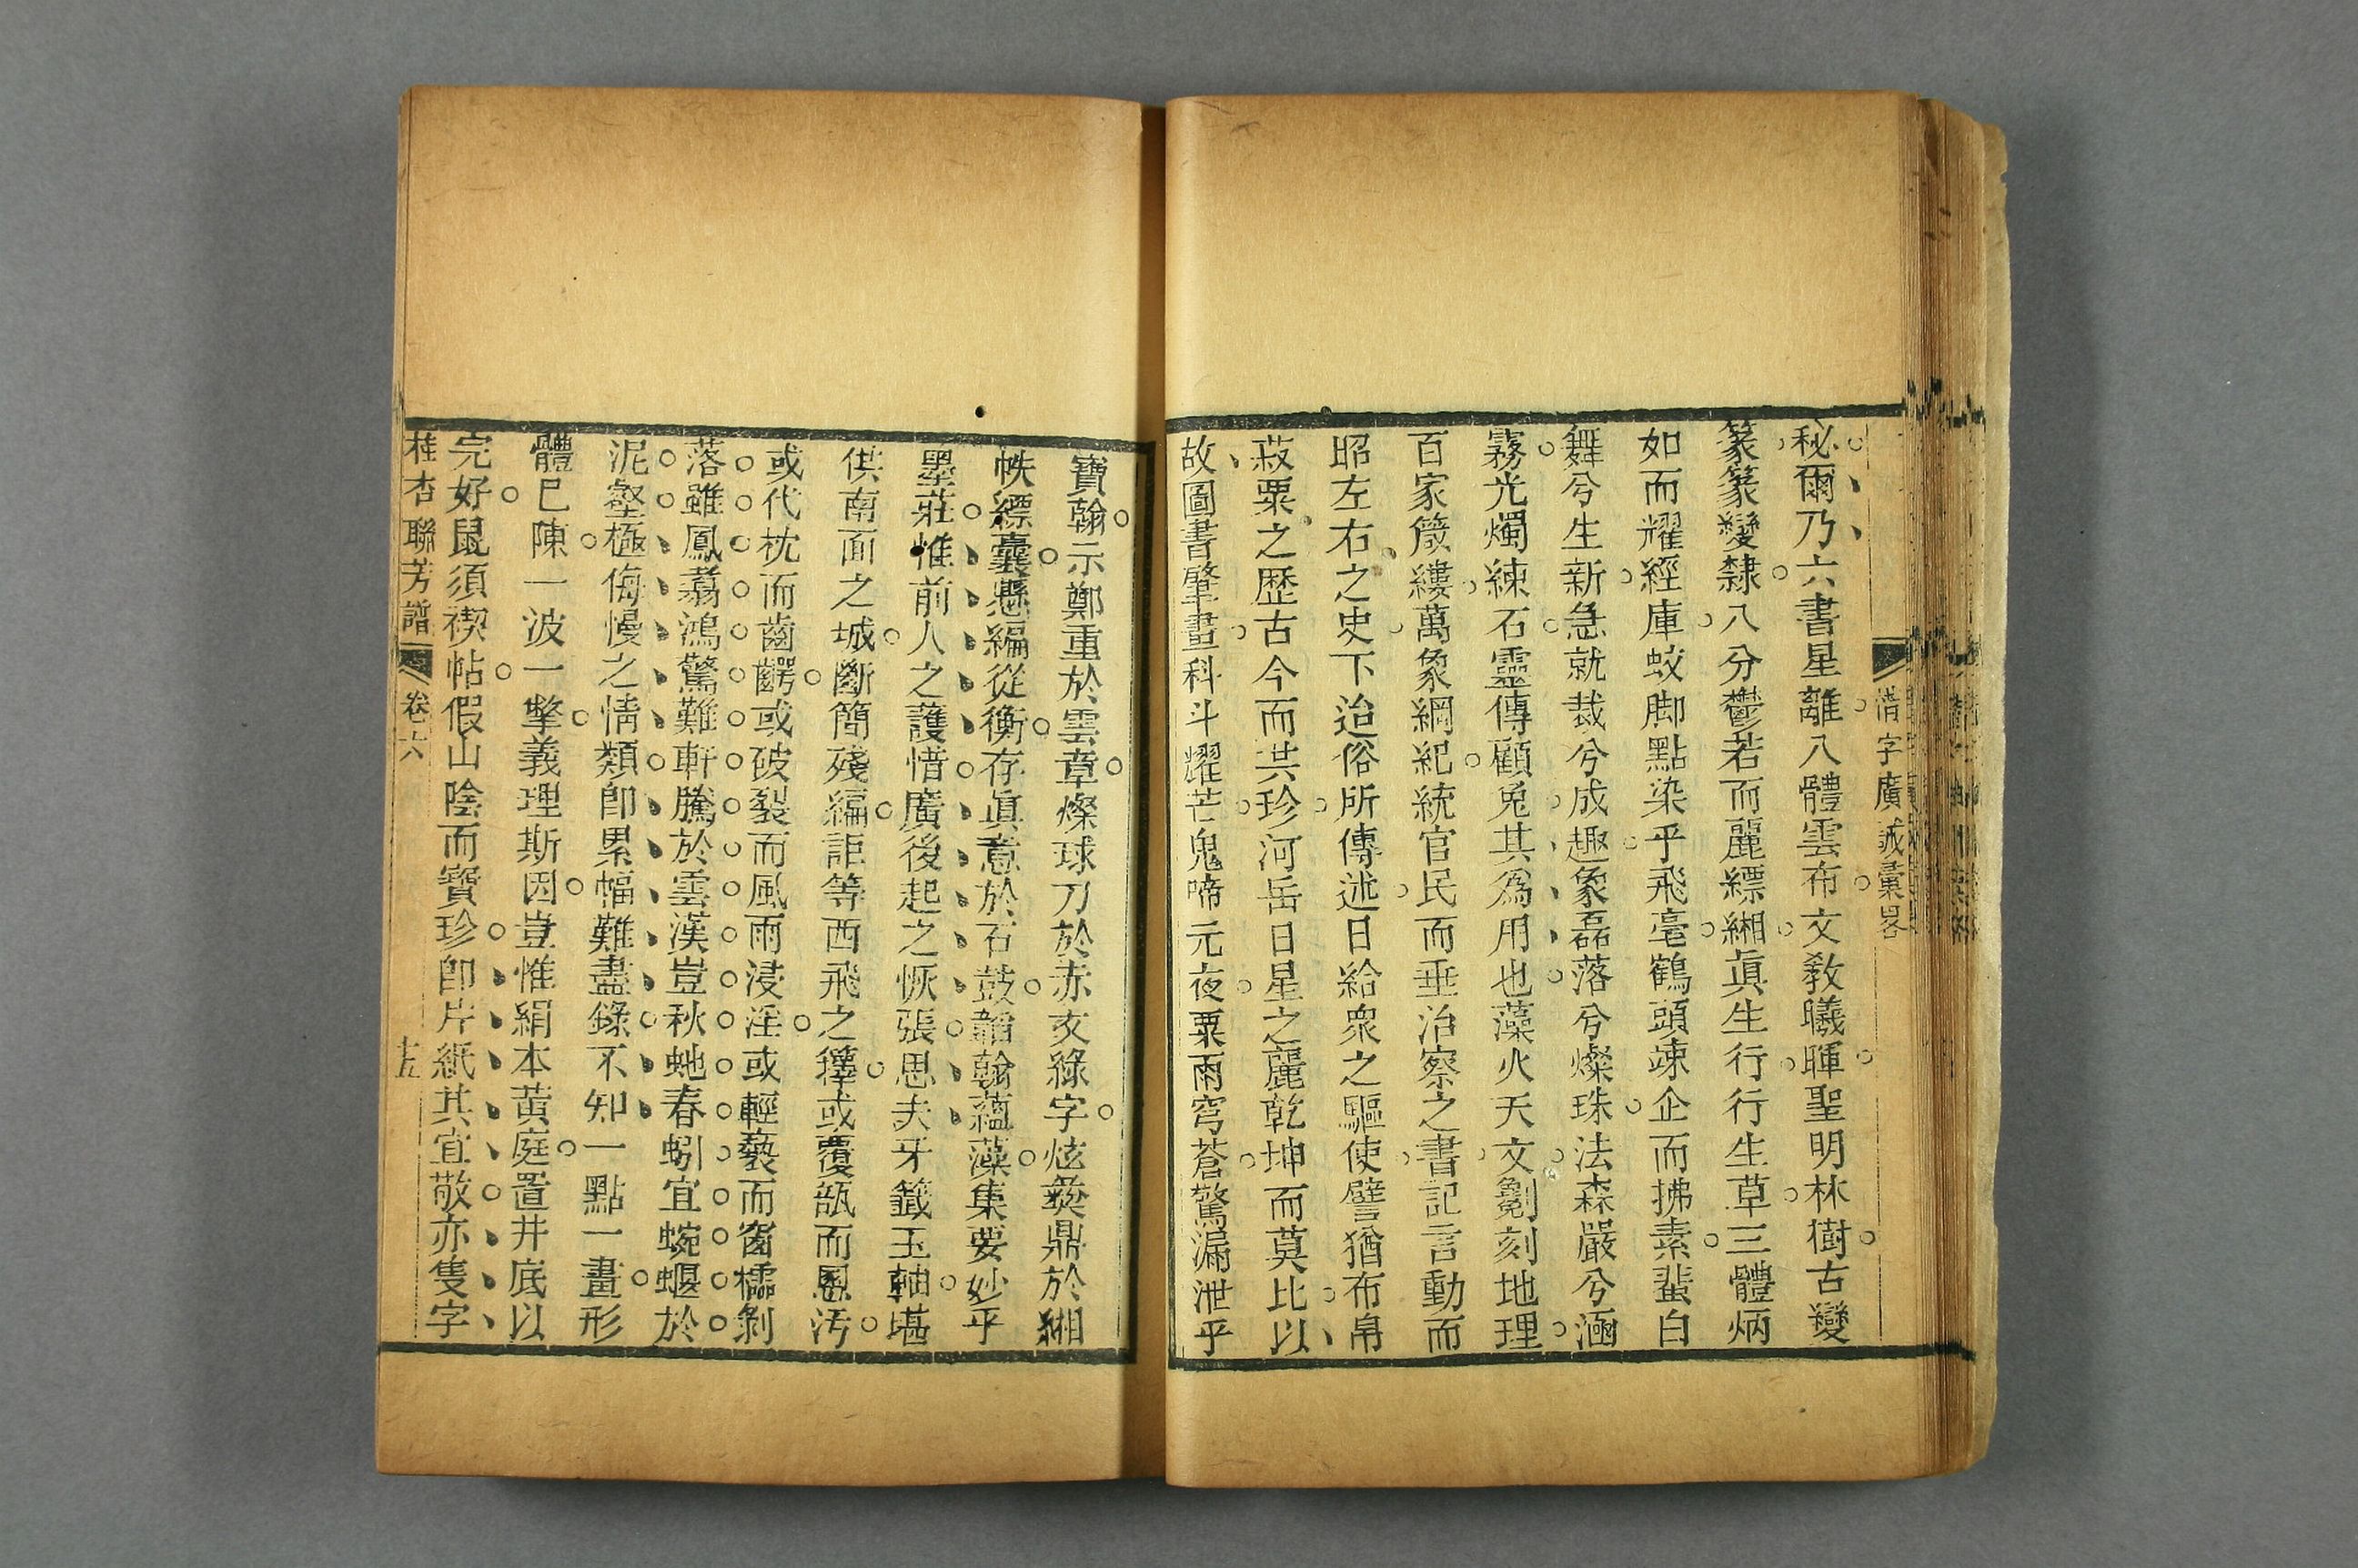 惜字廣誠彙畧
秘爾乃六書星離八體雲布文教曦暉聖明林樹古變
篆篆變隸八分鬱若而麗縹緗眞生行行生草三體炳
如而耀經庫蛟脚點染乎飛毫鶴頭竦企而拂素蜚白
舞兮生新急就裁兮成趣象磊落兮燦珠法森嚴兮涵
霧光燭練石靈傳顧兎其為用也藻火天文劖刻地理
百家箴縷萬象綱紀統官民而垂治察之書記言動而
昭左右之史下迨俗所傳述日給衆之驅使譬猶布帛
菽粟之歷古今而共珍河岳日星之麗乾坤而莫比以
故圖書肇畫科斗耀芒鬼啼元夜粟雨穹蒼驚漏泄乎
寶翰示鄭重於雲章燦球刀於赤文綠字炫彝鼎於緗
帙縹囊懸編從衡存眞意於石鼓韜翰蘊藻集要妙乎
墨莊惟前人之護惜廣後起之恢張思夫牙籤玉軸堪
供南面之城斷簡殘編詎等西飛之籜或覆瓿而恩汚
或代枕而齒齶或破裂而風雨浸淫或輕褻而窗櫺剝
落雖鳳翥鴻驚難軒騰於雲漢豈秋虵春蚓宜蜿蜒於
泥壑極侮慢之情類卽累幅難盡錄不知一點一畫形
體已陳一波一撆義理斯因豈惟絹本黃庭置井底以
完好鼠須禊帖假山陰而寶珍卽片紙其宜敬亦隻字
桂杏聯芳譜
卷六
十五